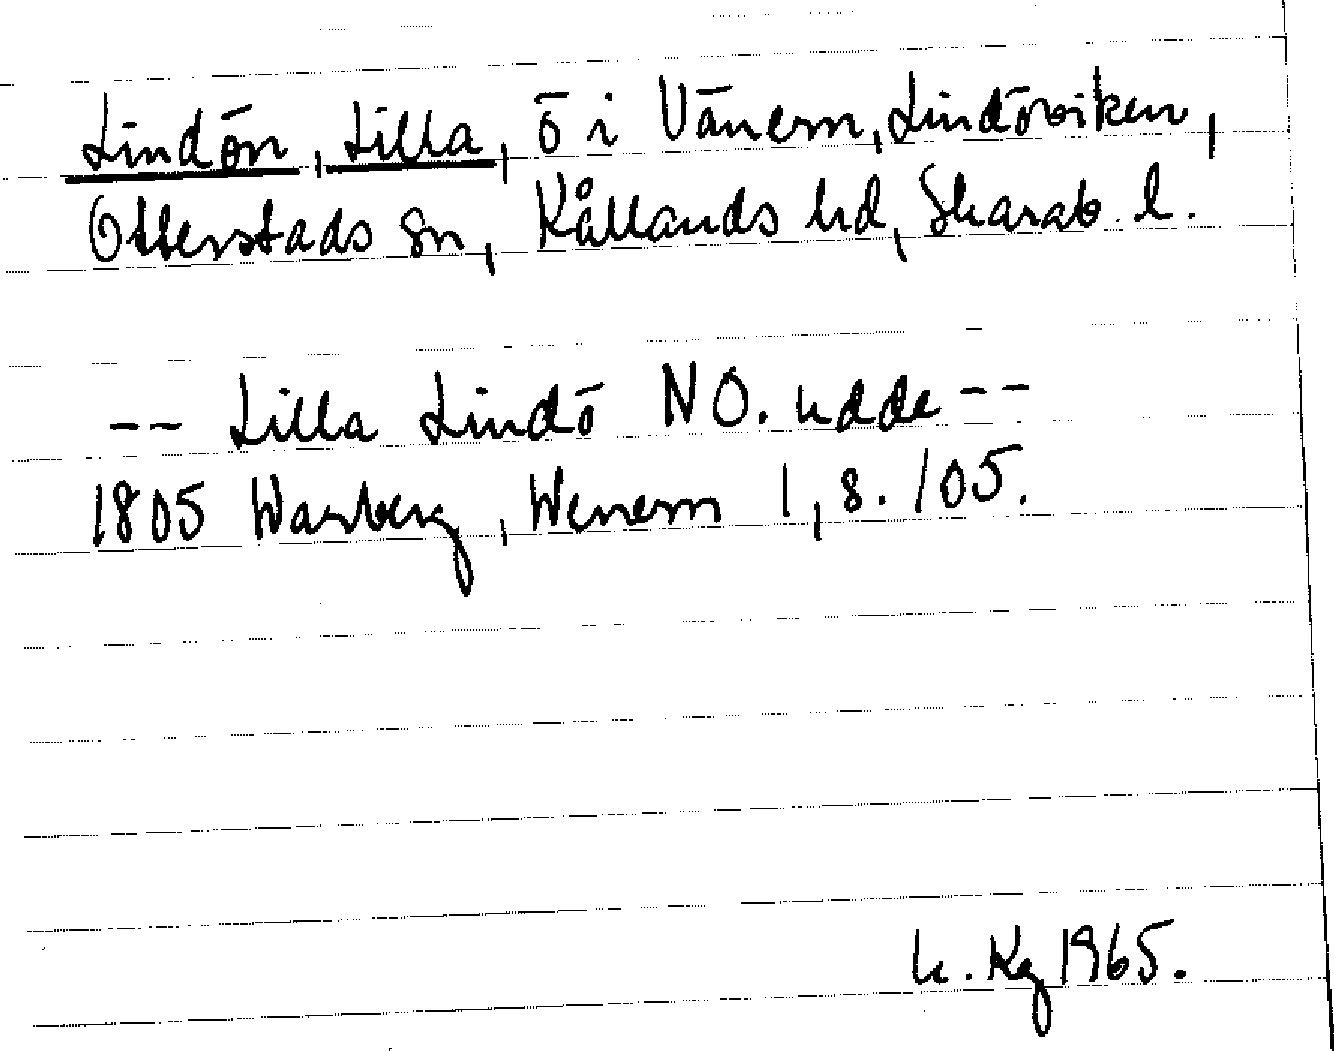 Lindön, Lilla, ö i Vänern, Lindöviken,
Otterstads sn, Kållands hd, Skarab. l.
-- Lilla Lindö NO. udde --
1805 Warberg, Wenern 1, s. 105.
K. Kg 1965.